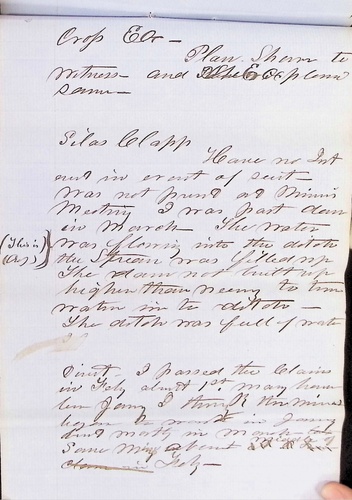 Crop Ex —
Plan. Shown to
witness — and he Explains
same —
Silas Clapp
Have no Int
erest in event of suit
was not present at Miners
Meeting I was past dam
in March The water
(This is
Crop)
was flowing into the ditch
the Stream was filled up
The dam not built up
higher than necessy to turn
water in to ditch —
The ditch was full of water
Direct. I passed the Claims
in Feby about 1st may have
been Jany I think the miners
began to work in Jany
but mostly in March
Some about middle of
in Feby —